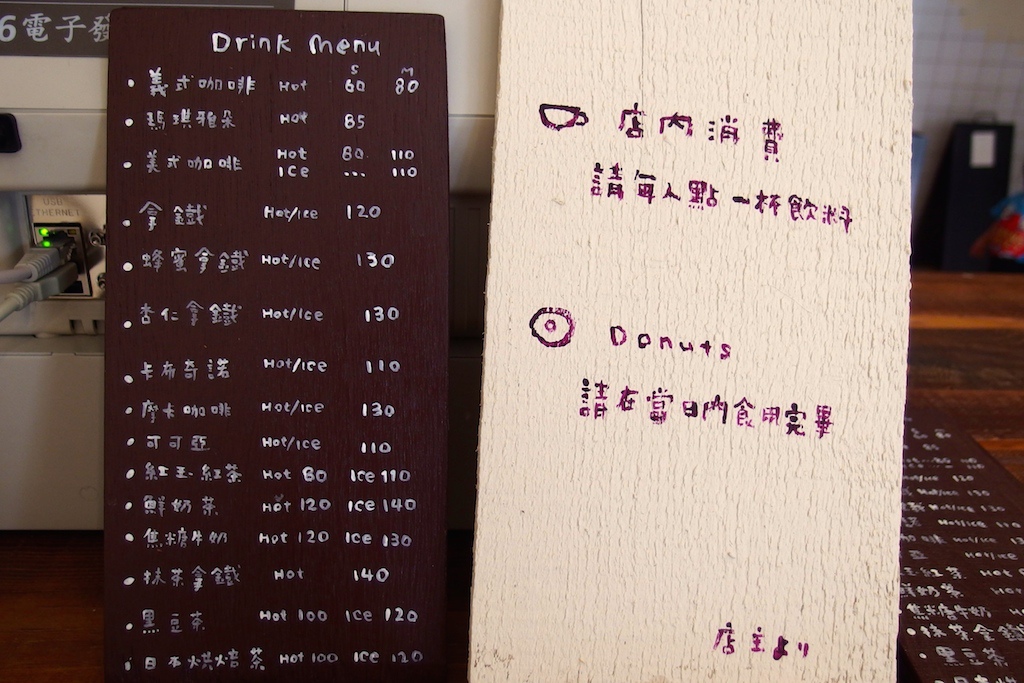 6電子發
USB
ETHERNET
Drink Menu
S M
• 義式咖啡 Hot 60 80
• 瑪琪雅朵 Hot 85
• 美式咖啡 Hot 80 110
Ice ... 110
• 拿鐵 Hot/Ice 120
• 蜂蜜拿鐵 Hot/Ice 130
• 杏仁拿鐵 Hot/Ice 130
• 卡布奇諾 Hot/Ice 110
• 摩卡咖啡 Hot/Ice 130
• 可可亞 Hot/Ice 110
• 紅玉紅茶 Hot 80 Ice 110
• 鮮奶茶 Hot 120 Ice 140
• 焦糖牛奶 Hot 120 Ice 130
• 抹茶拿鐵 Hot 140
• 黑豆茶 Hot 100 Ice 120
• 日本烘焙茶 Hot 100 Ice 120
店內消費
請每人點一杯飲料
Donuts
請在當日內食用完畢
店主より
Hot/Ice 120
Hot/Ice 130
Hot/Ice 110
亞 Hot/Ice
紅茶 Hot
鮮奶茶 Hot
焦糖牛奶 Hot
• 抹茶拿鐵
• 黑豆茶